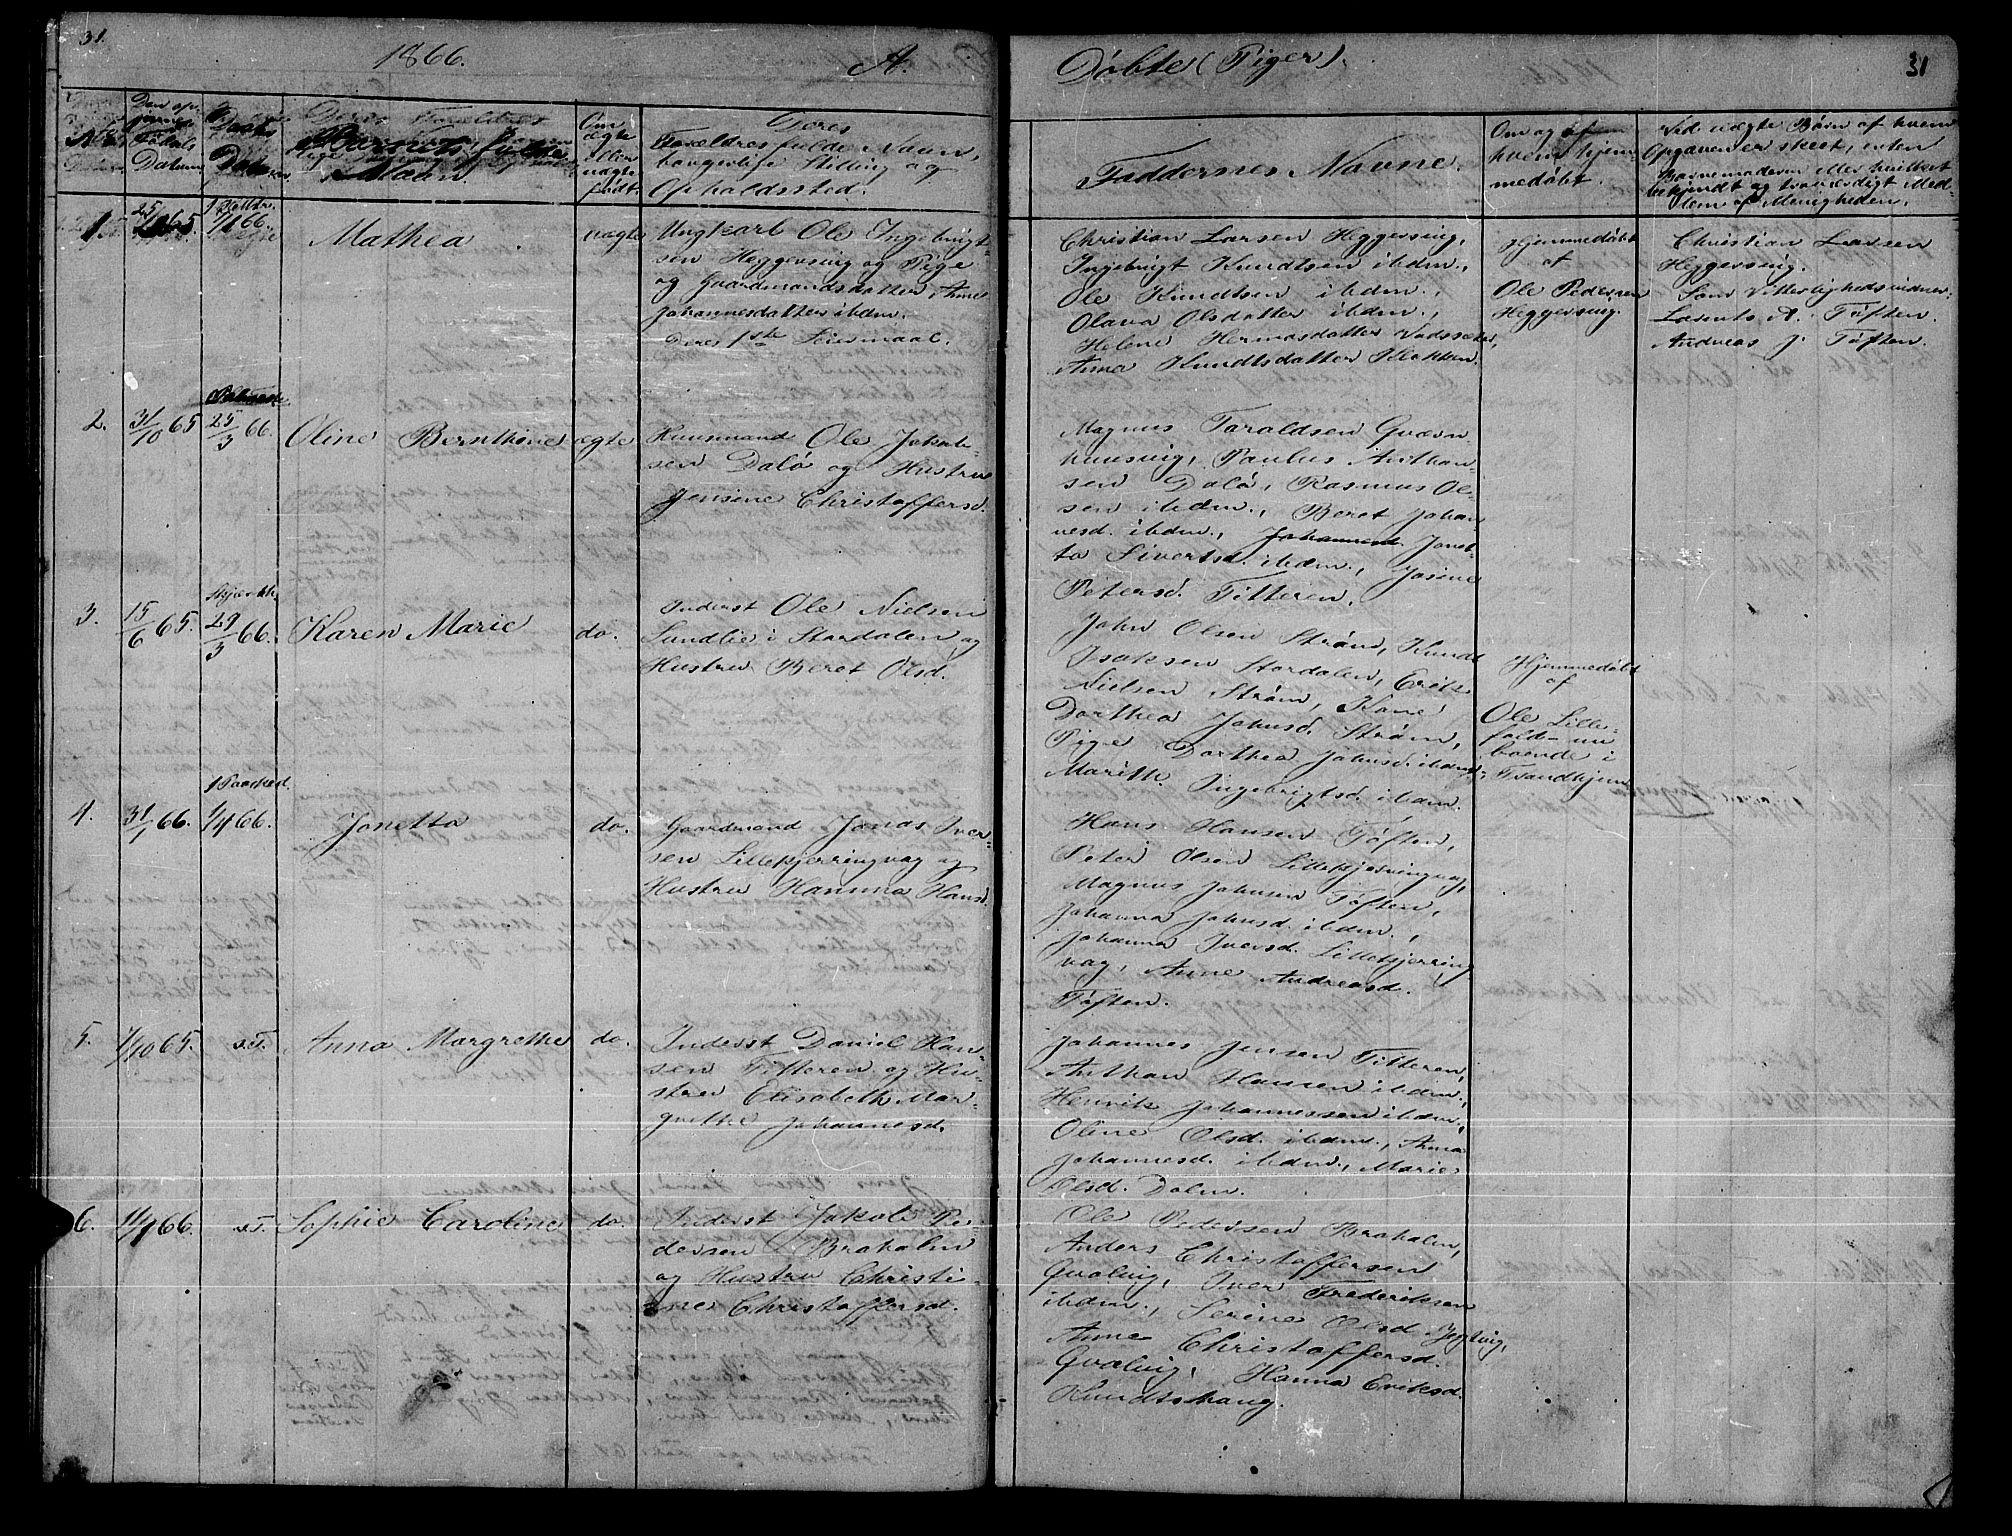 31.
1866.
A.
Døbte (Piger).
31
Nr.
Fødsels
Datum
Daabs
Datum
Barnets fulde
Navn.
Om
ægte
eller
uægte
født.
Deres
Forældres fulde Navn,
borgerlige Stilling og
Opholdssted.
Faddernes Navne.
Om og af
hvem hjem-
medøbt.
Ved uægte Børn af hvem
Opgaven er skeet, enten
Barnemoderen eller hvilket
bekjendt og troværdigt Med-
lem af Menigheden.
1.
1/1 66.
Mathea
uægte
Ungkarl Ole Ingebrigt-
sen Heggersvig og Pige
og Gaardmandsdatter Anne
Johannesdatter ibdm.
Deres 1ste Leiermaal.
Christian Larsen Heggersvig,
Ingebrigt Knudtsen ibdm.,
Ole Knudtsen ibdm.,
Olava Olsdatter ibdm.,
Helene Hermosdatter
Anna Knudtsdatter Klakken.
Hjemmedøbt
af
Ole Pedersen
Heggersvig.
Christian Larsen
Heggersvig.
Som Vitterlighedsvidner:
Lorents A. Tøften.
Andreas J. Tøften.
2.
31/10 65
25/3 66.
Oline Bernthine
ægte
Huusmand Ole Jakob-
sen Dalø og Hustru
Jensine Christoffersd.
Magnus Taraldsen Qværn-
huusvig, Paulus Anthon-
sen Dalø, Rasmus Ol-
sen ibdm., Beret Johan-
nesd. ibdm., Johannesd. Jonet-
ta Sivertsd. ibdm., Josine
Petersd. Titteren.
3.
15/6 65.
29/3 66.
Karen Marie
do.
Inderst Ole Nielsen
Sundlie i Stordalen og
Hustru Beret Olsd.
John Olsen Strøm, Knudt
Isaksen Stordalen, Erik
Nielsen Strøm, Kone
Dorthea Johnsd. Strøm,
Pige Dorthea Johnsd. ibdm.,
Marith Ingebrigtsd. ibdm.
Hjemmedøbt
af
Ole Lille-
fold nu
boende i
Trondhjem
4.
31/1 66.
1 Paasked.
1/4 66.
Jonetta
do.
Gaardmand Jonas Iver-
sen Lillekjerringvag og
Hustru Hanna Hansd.
Hans Hansen Tøften,
Peter Olsen Lillekjerringvag,
Magnus Johnsen Tøften,
Johanna Johnsd. ibdm.,
Johanna Iversd. Lillekjerring-
vag, Anne Andreasd.
Tøften.
5.
1/10 65.
s.T.
Anna Margrethe
do.
Inderst Daniel Han-
sen Titteren og Hu-
stru Elisabeth Mar-
grethe Johannesd.
Johannes Jensen Titteren,
Anthon Hansen ibdm.,
Henrik Johannessen ibdm.,
Oline Olsd. ibdm., Anna
Johannesd. ibdm., Marie
Olsd. Dolm.
6.
11/1 66.
s.T.
Sophie Caroline
do.
Inderst Jakob Pe-
dersen Braholm
og Hustru Christi-
ane Christoffersd.
Ole Pedersen Braholm,
Anders Christoffersen
Qvalvig, Iver Frederiksen
ibdm., Serine Olsd. Jegtvig,
Anne Christoffersd.
Qvalvig, Hanna Eriksd.
Knudtshaug.